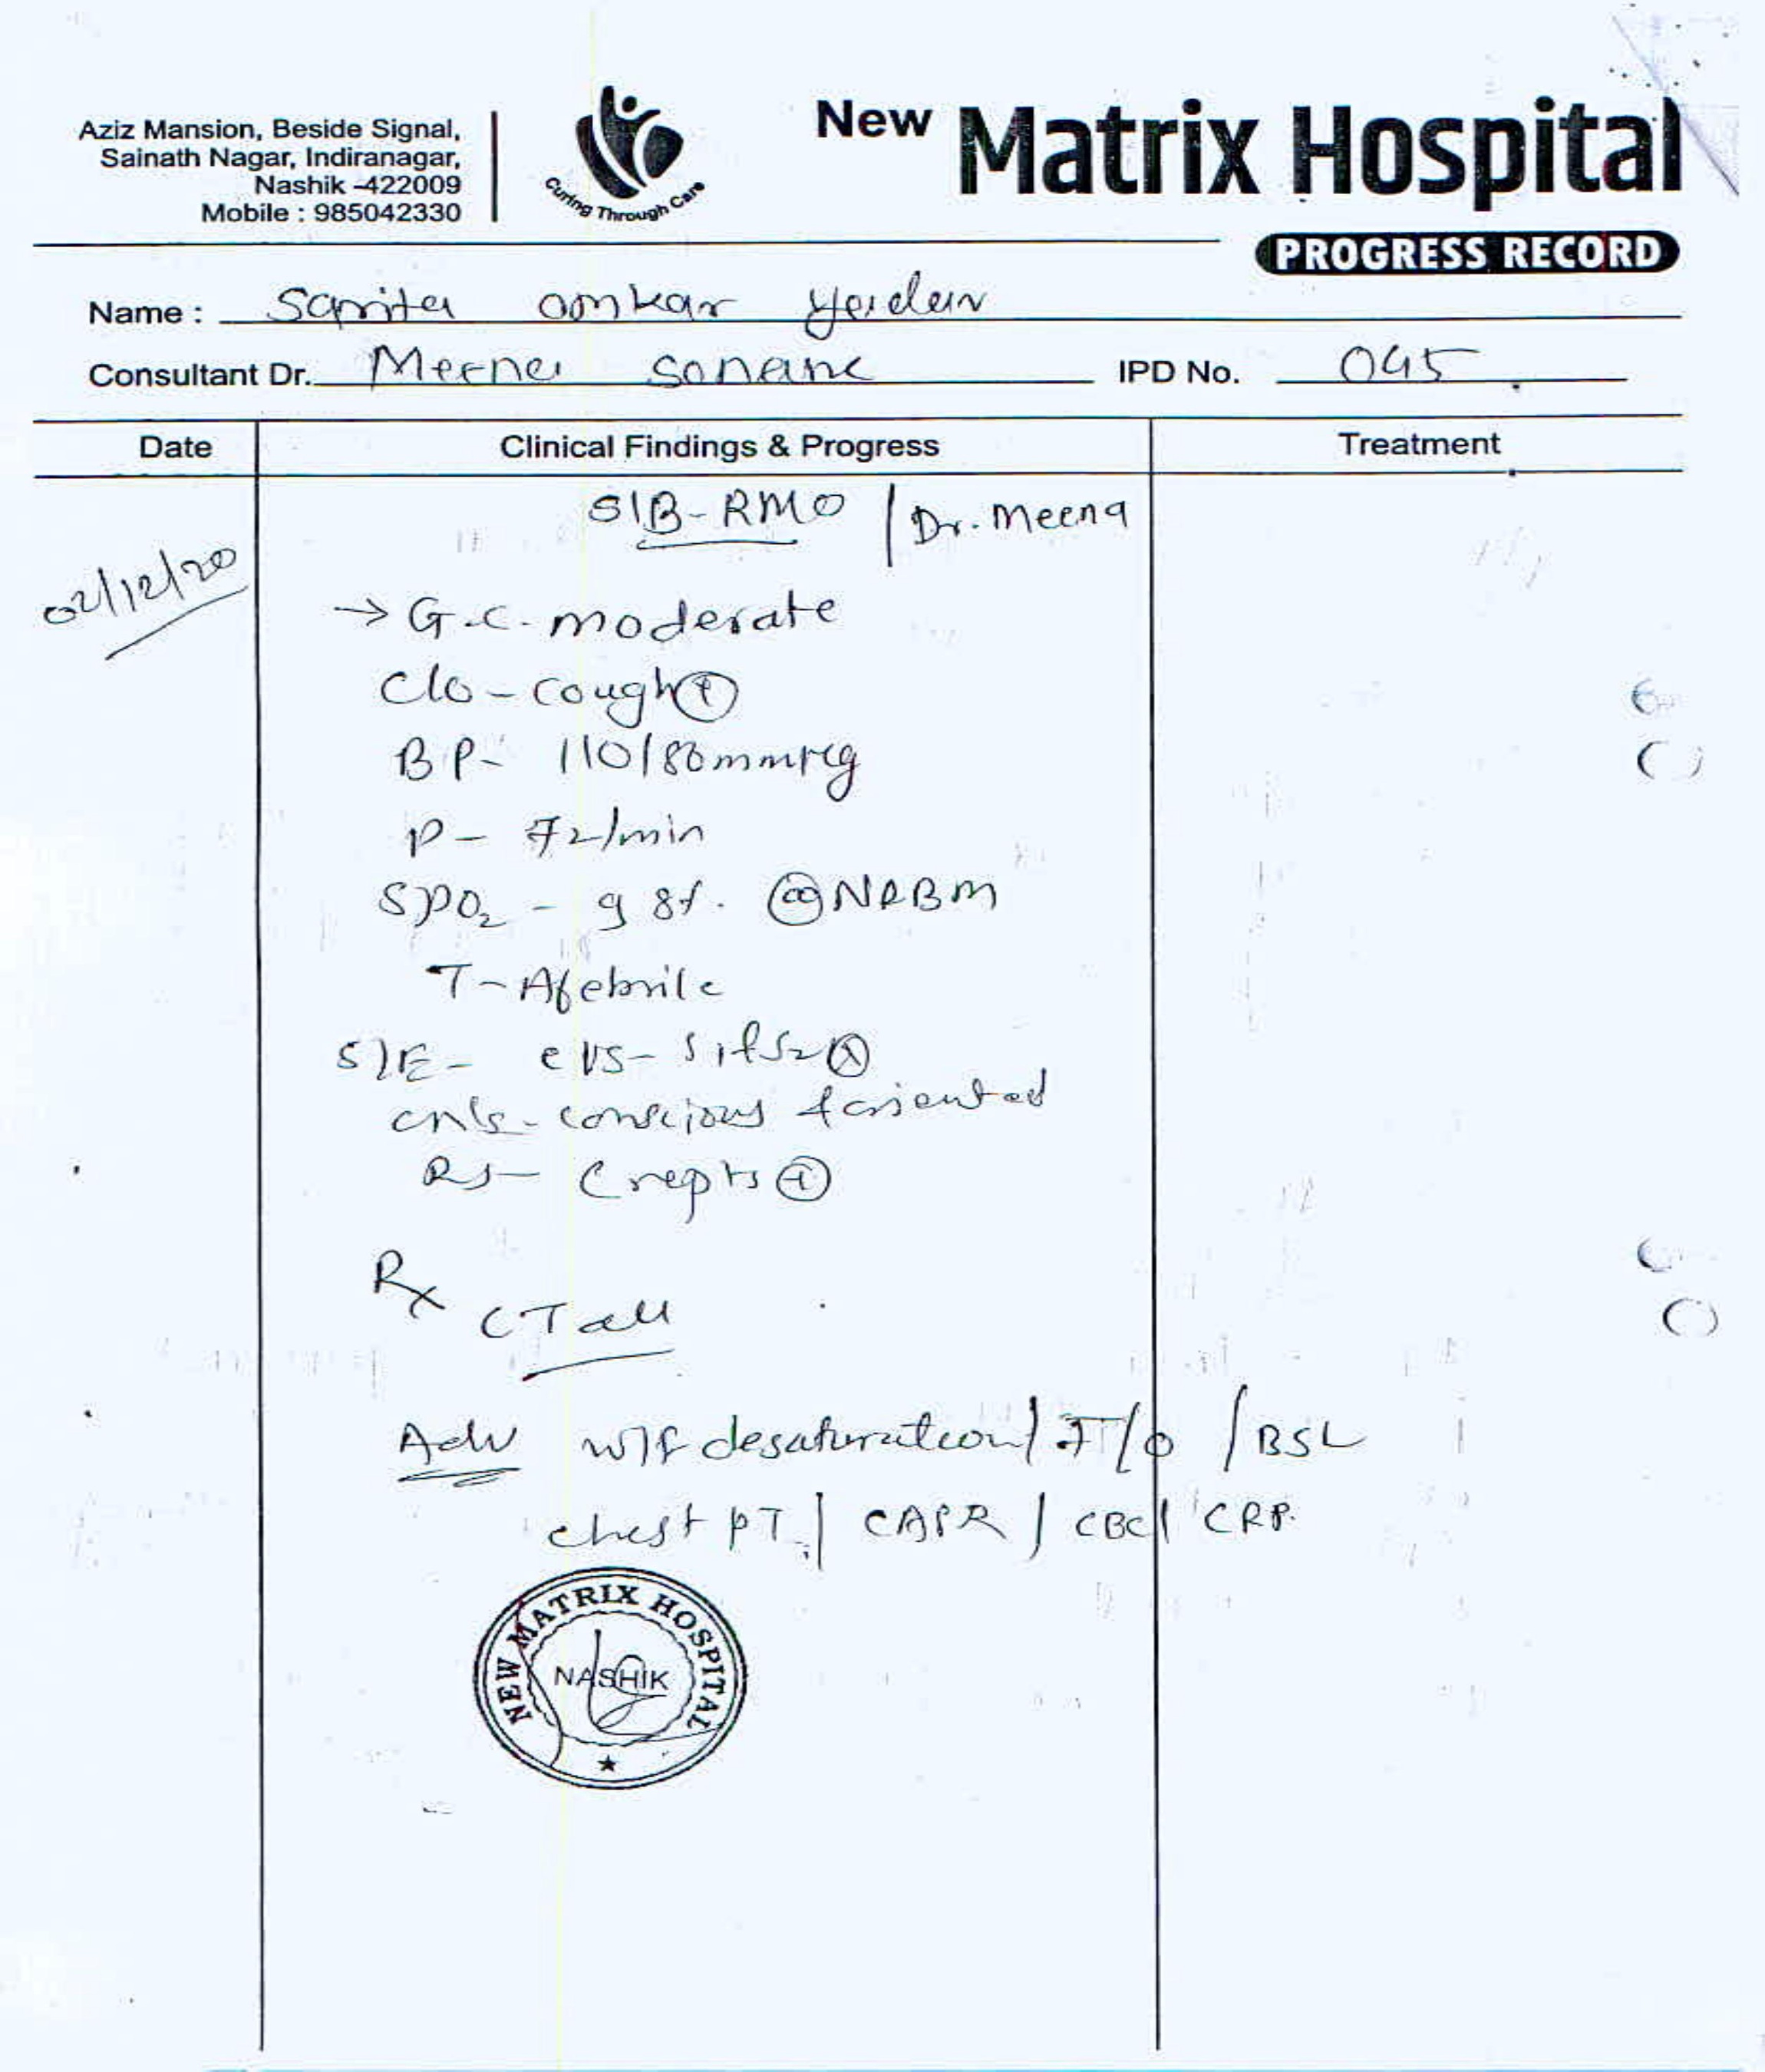 Aziz Mansion, Beside Signal,
Sainath Nagar, Indiranagar,
Nashik -422009
Mobile : 985042330
Curing Through Care
New Matrix Hospital
PROGRESS RECORD
Name : Sarita omkar
Consultant Dr. Meena sonane IPD No. 045
Date Clinical Findings & Progress Treatment
S/B-RMO / Dr. Meena
02/12/20
→ G.C. moderate
C/o - cough ⊕
BP - 110/80mmHg
P - 72/min
SPO₂ - 98%. @ NRBM
T - Afebrile
S/E - CVS - S1+S2
CNS - conscious & oriented
RS - Crepts ⊕
Rx
CT all
Adv w/f desaturation / I/O / BSL
chest PT / / CBC / CRP.
NEW MATRIX HOSPITAL
NASHIK